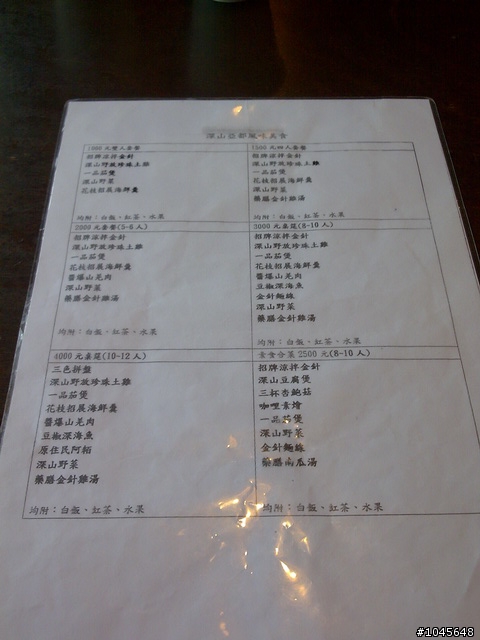 深山忘都風味美食
1000元雙人套餐
招牌涼拌金針
深山野放珍珠土雞
一品茄煲
深山野菜
花枝招展海鮮羹
均附：白飯、紅茶、水果
1500元四人套餐
招牌涼拌金針
深山野放珍珠土雞
一品茄煲
花枝招展海鮮羹
深山野菜
藥膳金針雞湯
均附：白飯、紅茶、水果
2000元套餐(5-6人)
招牌涼拌金針
深山野放珍珠土雞
一品茄煲
花枝招展海鮮羹
醬爆山羌肉
深山野菜
藥膳金針雞湯
均附：白飯、紅茶、水果
3000元桌菜(8-10人)
招牌涼拌金針
深山野放珍珠土雞
一品茄煲
花枝招展海鮮羹
醬爆山羌肉
豆椒深海魚
金針麵線
深山野菜
藥膳金針雞湯
均附：白飯、紅茶、水果
4000元桌菜(10-12人)
三色拼盤
深山野放珍珠土雞
一品茄煲
花枝招展海鮮羹
醬爆山羌肉
豆椒深海魚
原住民阿粨
深山野菜
藥膳金針雞湯
均附：白飯、紅茶、水果
素食合菜2500元(8-10人)
招牌涼拌金針
深山豆腐煲
三杯杏鮑菇
咖哩素燴
一品茄煲
深山野菜
金針麵線
藥膳南瓜湯
均附：白飯、紅茶、水果
#1045648